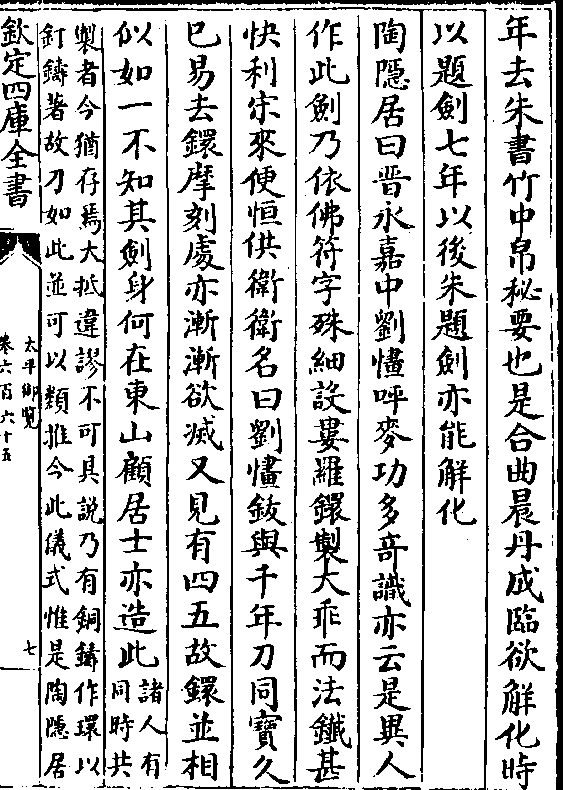 年去朱書竹中帛秘要也是合曲晨丹成臨欲解化時
以題劍七年以後朱題劍亦能解化
陶隱居曰晋永嘉中劉愭呼麥功多竒識亦云是異人
作此劍乃依佛符字殊細設婁羅鐶製大乖而法鐵甚
快利宗來便恒供衛衛名曰劉愭鈸與千年刀同寶久
已易去鐶摩刻處亦漸漸欲滅又見有四五故鐶並相
似如一不知其劍身何在東山顧居士亦造此諸人有
同時共
製者今猶存焉大抵違謬不可具説乃有銅鑄作環以
釘鑄著故刀如此並可以類推今此儀式惟是陶隱居
欽定四庫全書
太平御覽
卷六百六十五
七